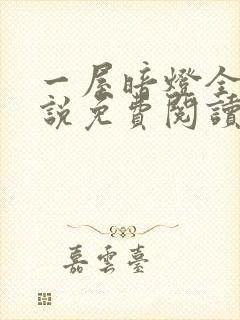 一屋暗燈全
說免費閱讀
嘉雲臺